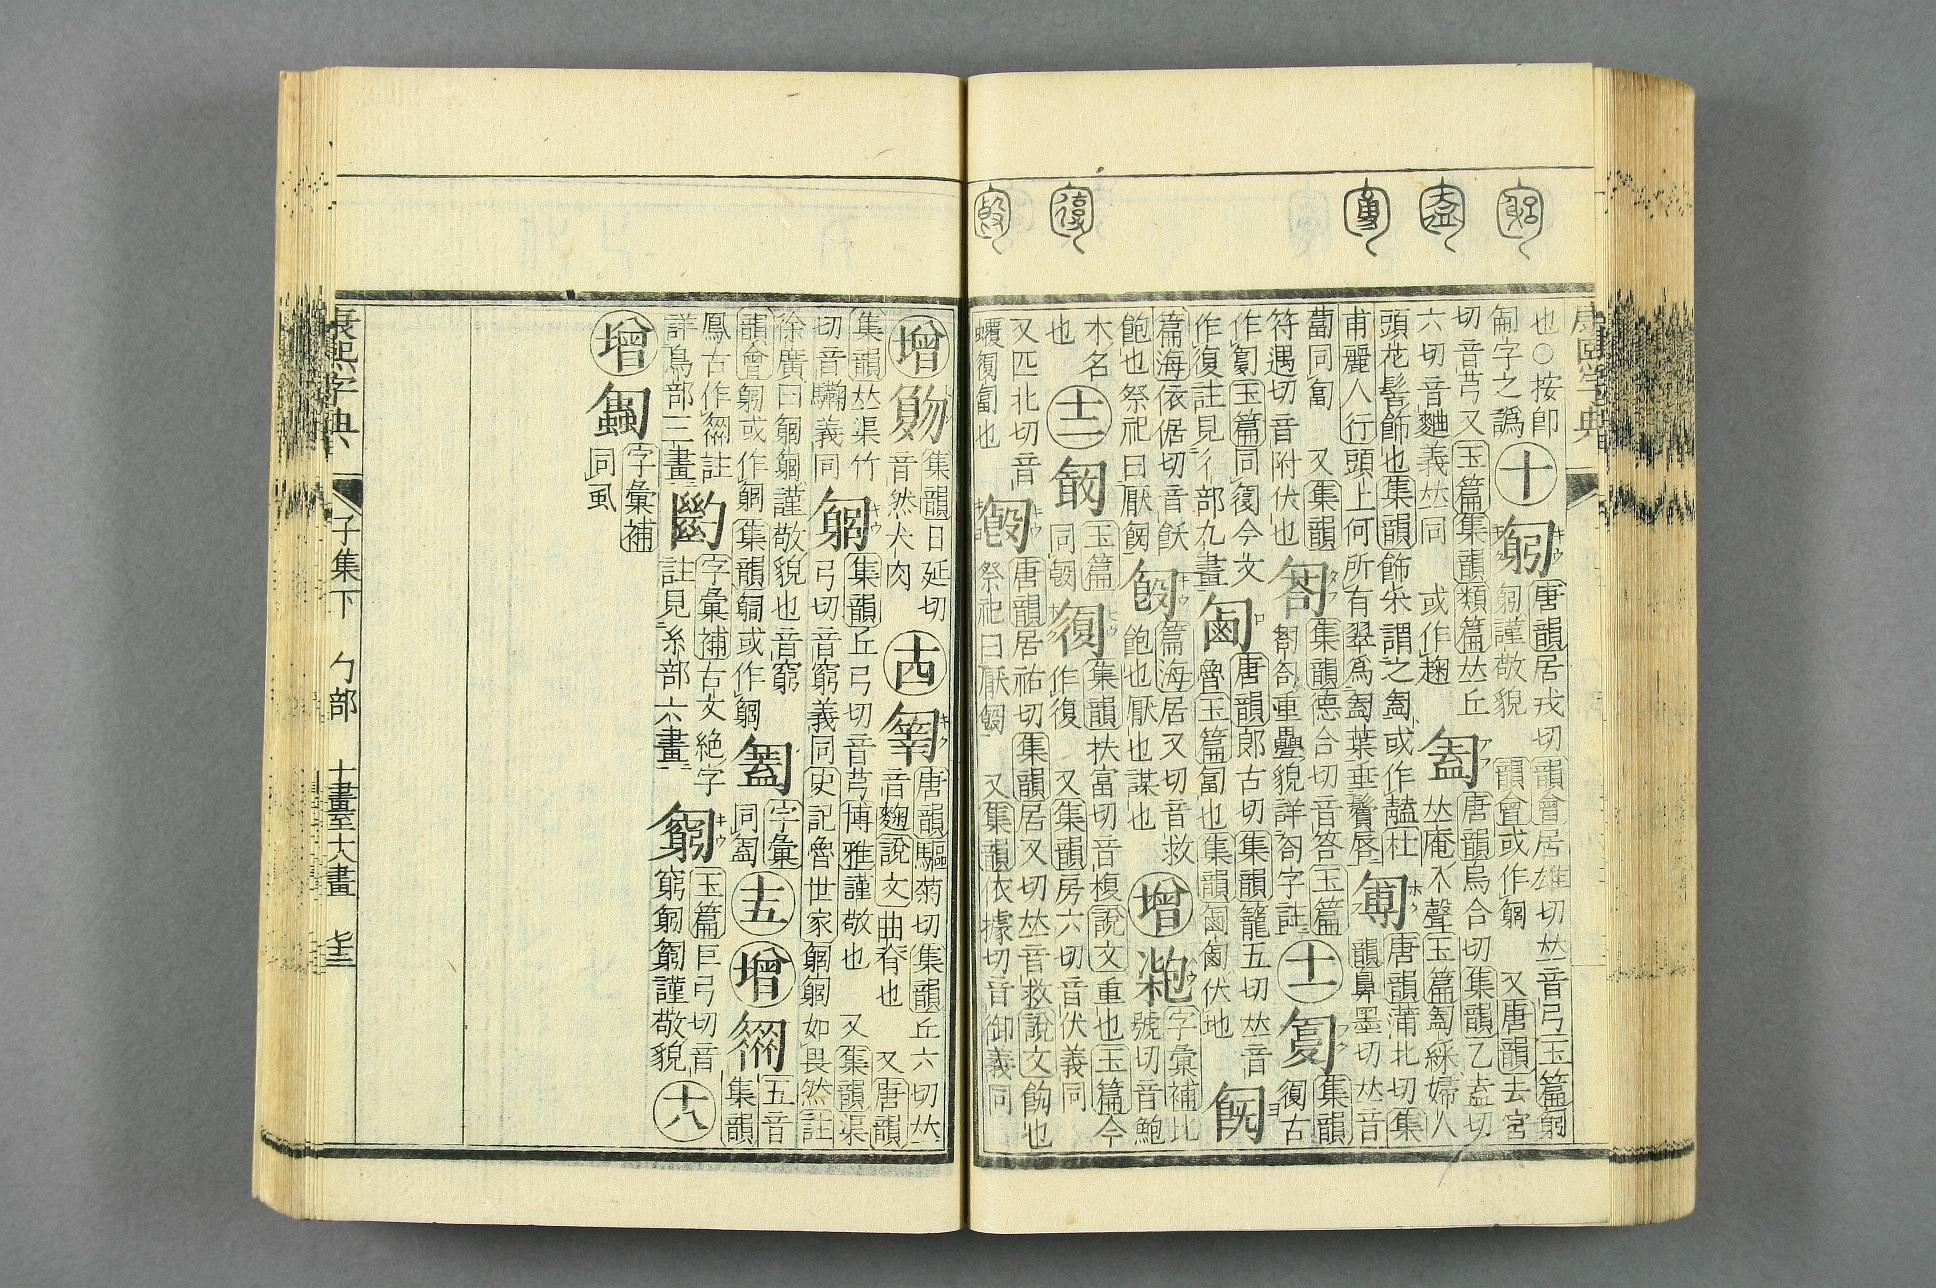 也○按卽
匔字之譌
十
匑
唐韻居戎切韻會居雄切𠀤音弓玉篇匑
匑謹敬貌 韻會或作匔 又唐韻去宮
切音芎又玉篇集韻類篇𠀤丘
六切音麯義𠀤同 或作趜
匎
唐韻烏合切集韻乙盍切
𠀤庵入聲玉篇匎綵婦人
頭花髻飾也集韻飾采謂之匎或作𨢭杜
甫麗人行頭上何所有翠爲匎葉垂鬢唇
匐
唐韻蒲北切集
韻鼻墨切𠀤音
蔔同匐 又集韻
符遇切音附伏也
匒
集韻德合切音答玉篇
匒匌重疊貌詳匌字註
十一
集韻
復古
作匔玉篇同復今文
作復註見彳部九畫
唐韻郎古切集韻籠五切𠀤音
魯玉篇匐也集韻伏地
篇海依倨切音飫
飽也祭祀曰厭
篇海居又切音救
飽也厭也謀也
增
字彙補比
號切音鮑
木名
也
十二
玉篇
同
集韻扶富切音複說文重也玉篇今
作復 又集韻房六切音伏義同
又匹北切音
匐也
唐韻居祐切集韻居又切𠀤音救說文飽也
祭祀曰厭 又集韻依據切音御義同
增
集韻日延切
音然犬肉
十四
唐韻驅菊切集韻丘六切𠀤
音麴說文曲脊也 又唐韻
集韻𠀤渠竹
切音驧義同
匔
集韻丘弓切音芎博雅謹敬也 又集韻渠
弓切音窮義同史記魯世家匔匔如畏然註
徐廣曰匔匔謹敬貌也音窮
韻會匔或作匑集韻匑或作匔
字彙
同匎
十五
增
五音
集韻
鳳古作 註
詳鳥部三畫
字彙補古文絶字
註見糸部六畫
玉篇巨弓切音
窮匔匔謹敬貌
十八
增
字彙補
同虱
康熙字典
子集下 勹部 十畫至大畫 七三